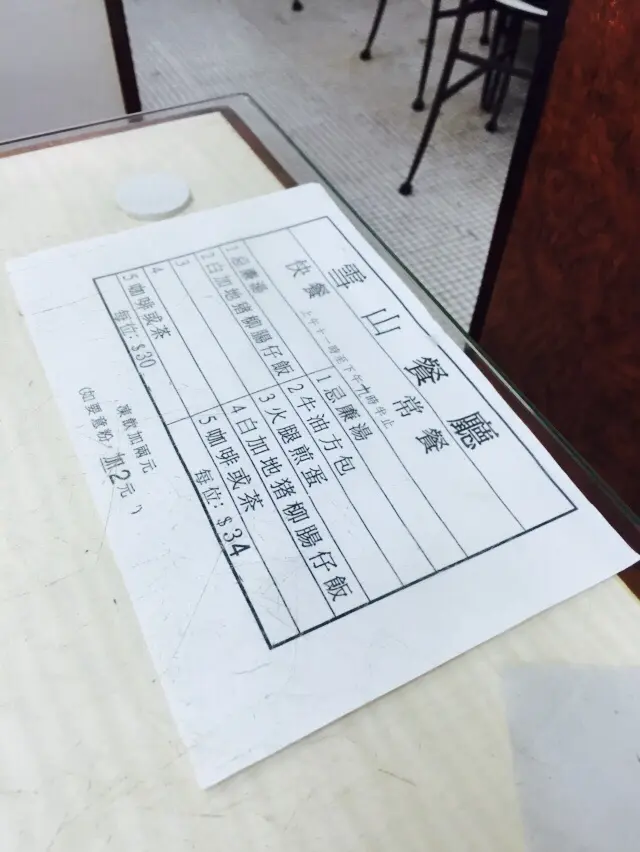 雪山餐廳
快餐 常餐
上午十一時至下午九時半止
1 忌廉湯
2 白加地猪柳腸仔飯
3
4
5 咖啡或茶
每位: $30
1 忌廉湯
2 牛油方包
3 火腿煎蛋
4 白加地猪柳腸仔飯
5 咖啡或茶
每位: $34
凍飲加兩元
(如要意粉,加2元)